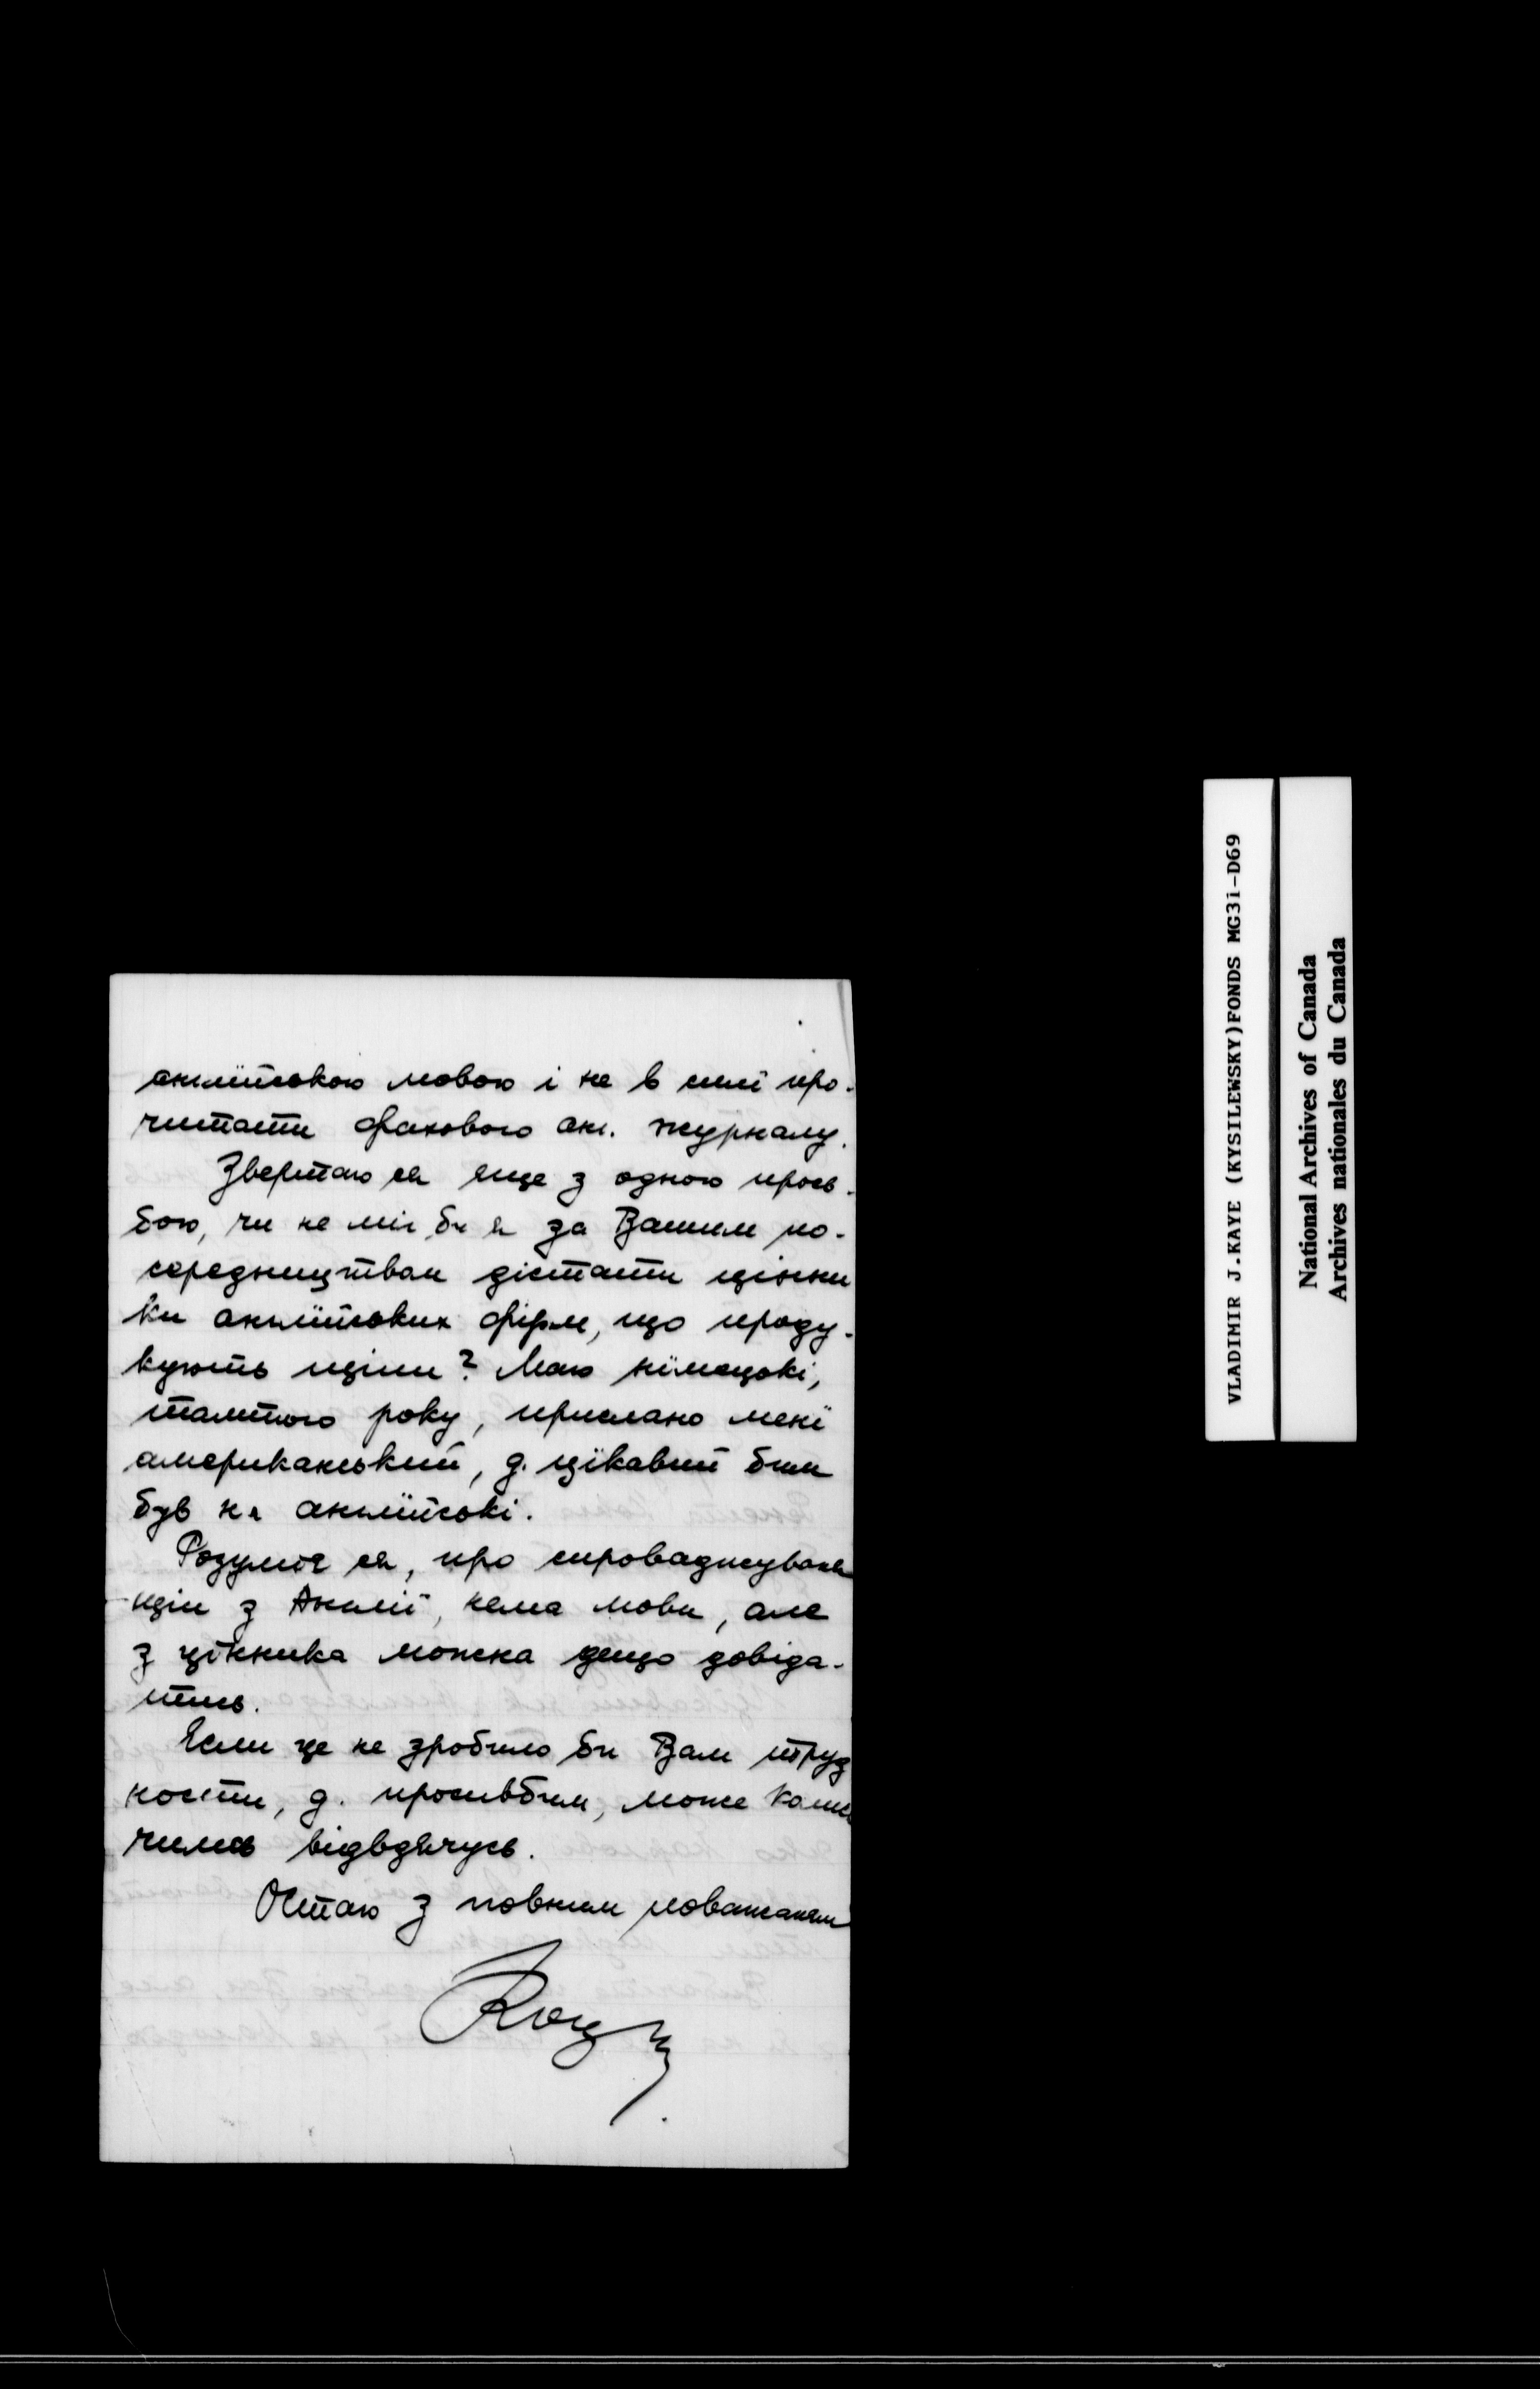 англїйською мовою і не в силї про-
читати фахового анг. журналу.
Звертаю ся еще з одною прось-
бою, чи не міг би я за Вашим по-
середництвом дістати цінни
ки англїйських фірм, що проду-
кують щіпи? Маю нїмецькі,
тамтого року, прислано менї
американський, д. цїкавий бим
був на англїйські.
Розумієся, про спроваджуваня
щіп з Англїї, нема мови, але
з цїнника можна дещо довіда-
тись.
Если це не зробило би Вам труд
ности, д. просивбим, може
чимсь відвдячусь.
Остаю з повним поважаням
VLADIMIR J.KAYE (KYSILEWSKY)FONDS MG31-D69
National Archives of Canada
Archives nationales du Canada